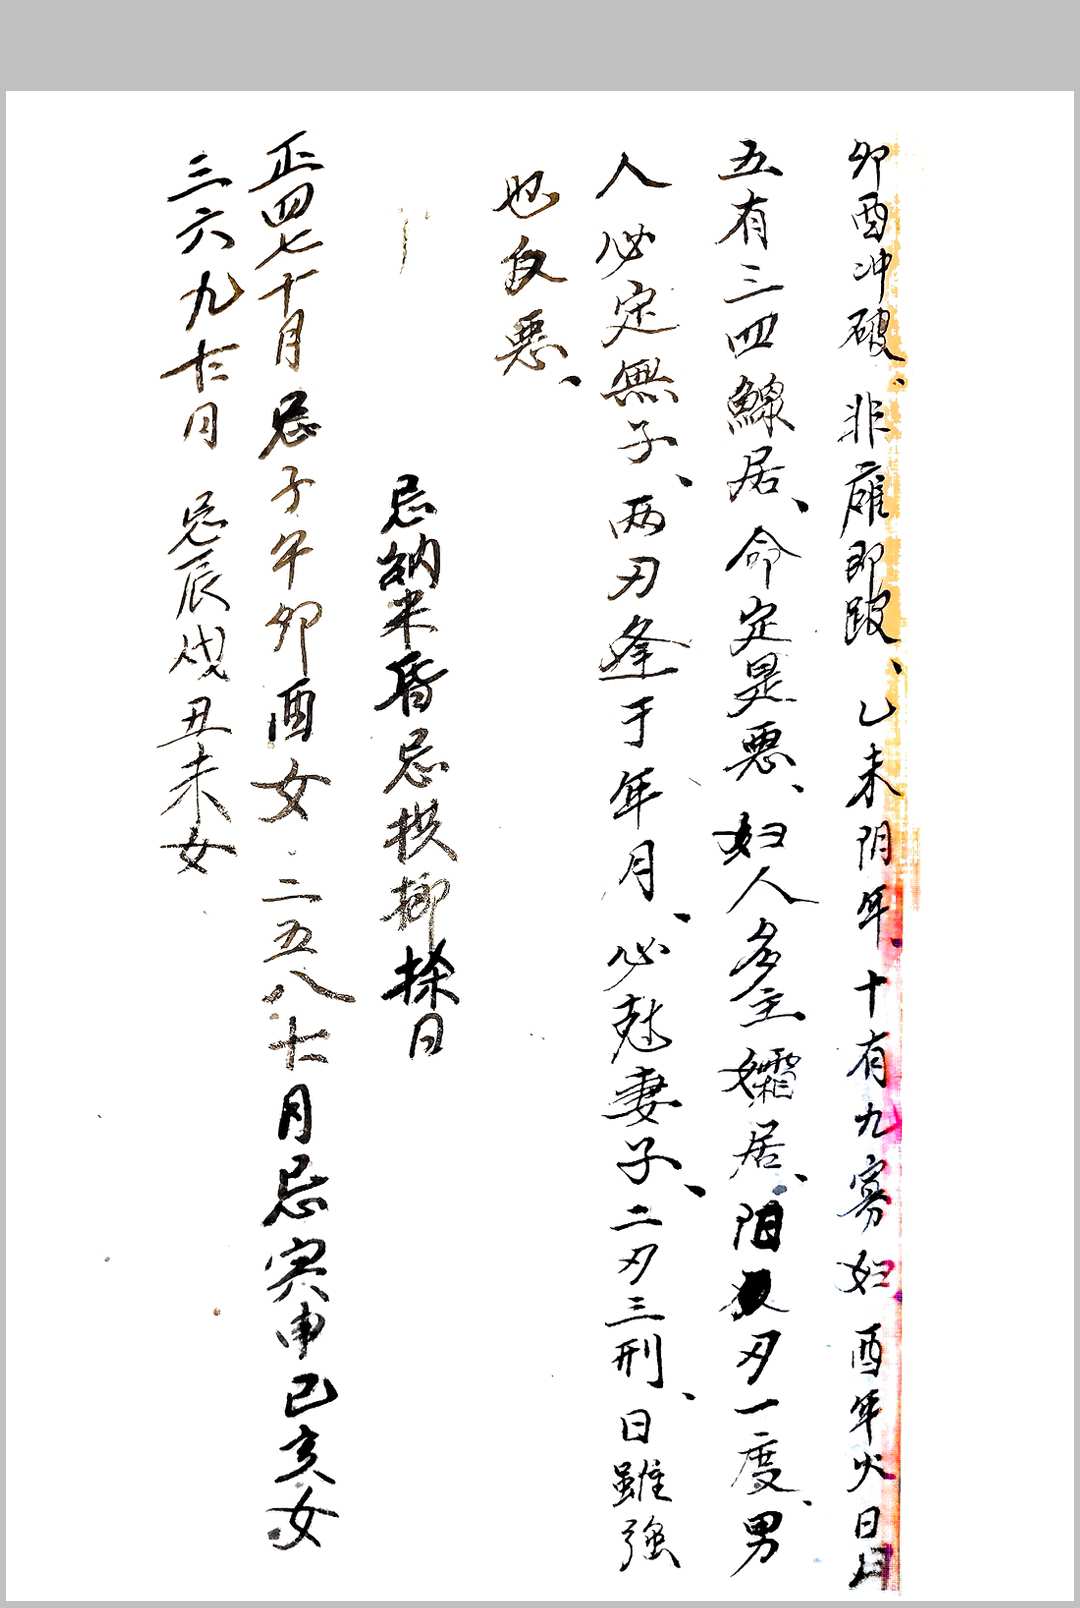 卯酉冲破、非雁即跛、乙未阴年、十有九寡妇酉年火日月
五有三四鰥居、命定是悪、妇人多主孀居、阳刃一度、男
人必定無子、两刃逢于年月、必尅妻子、二刃三刑、日雖強
也反悪、
忌納米昏忌拱揤捈日
正四七十月忌子午卯酉女 二五八十一月忌寅申巳亥女
三六九十二月 忌辰戌丑未女